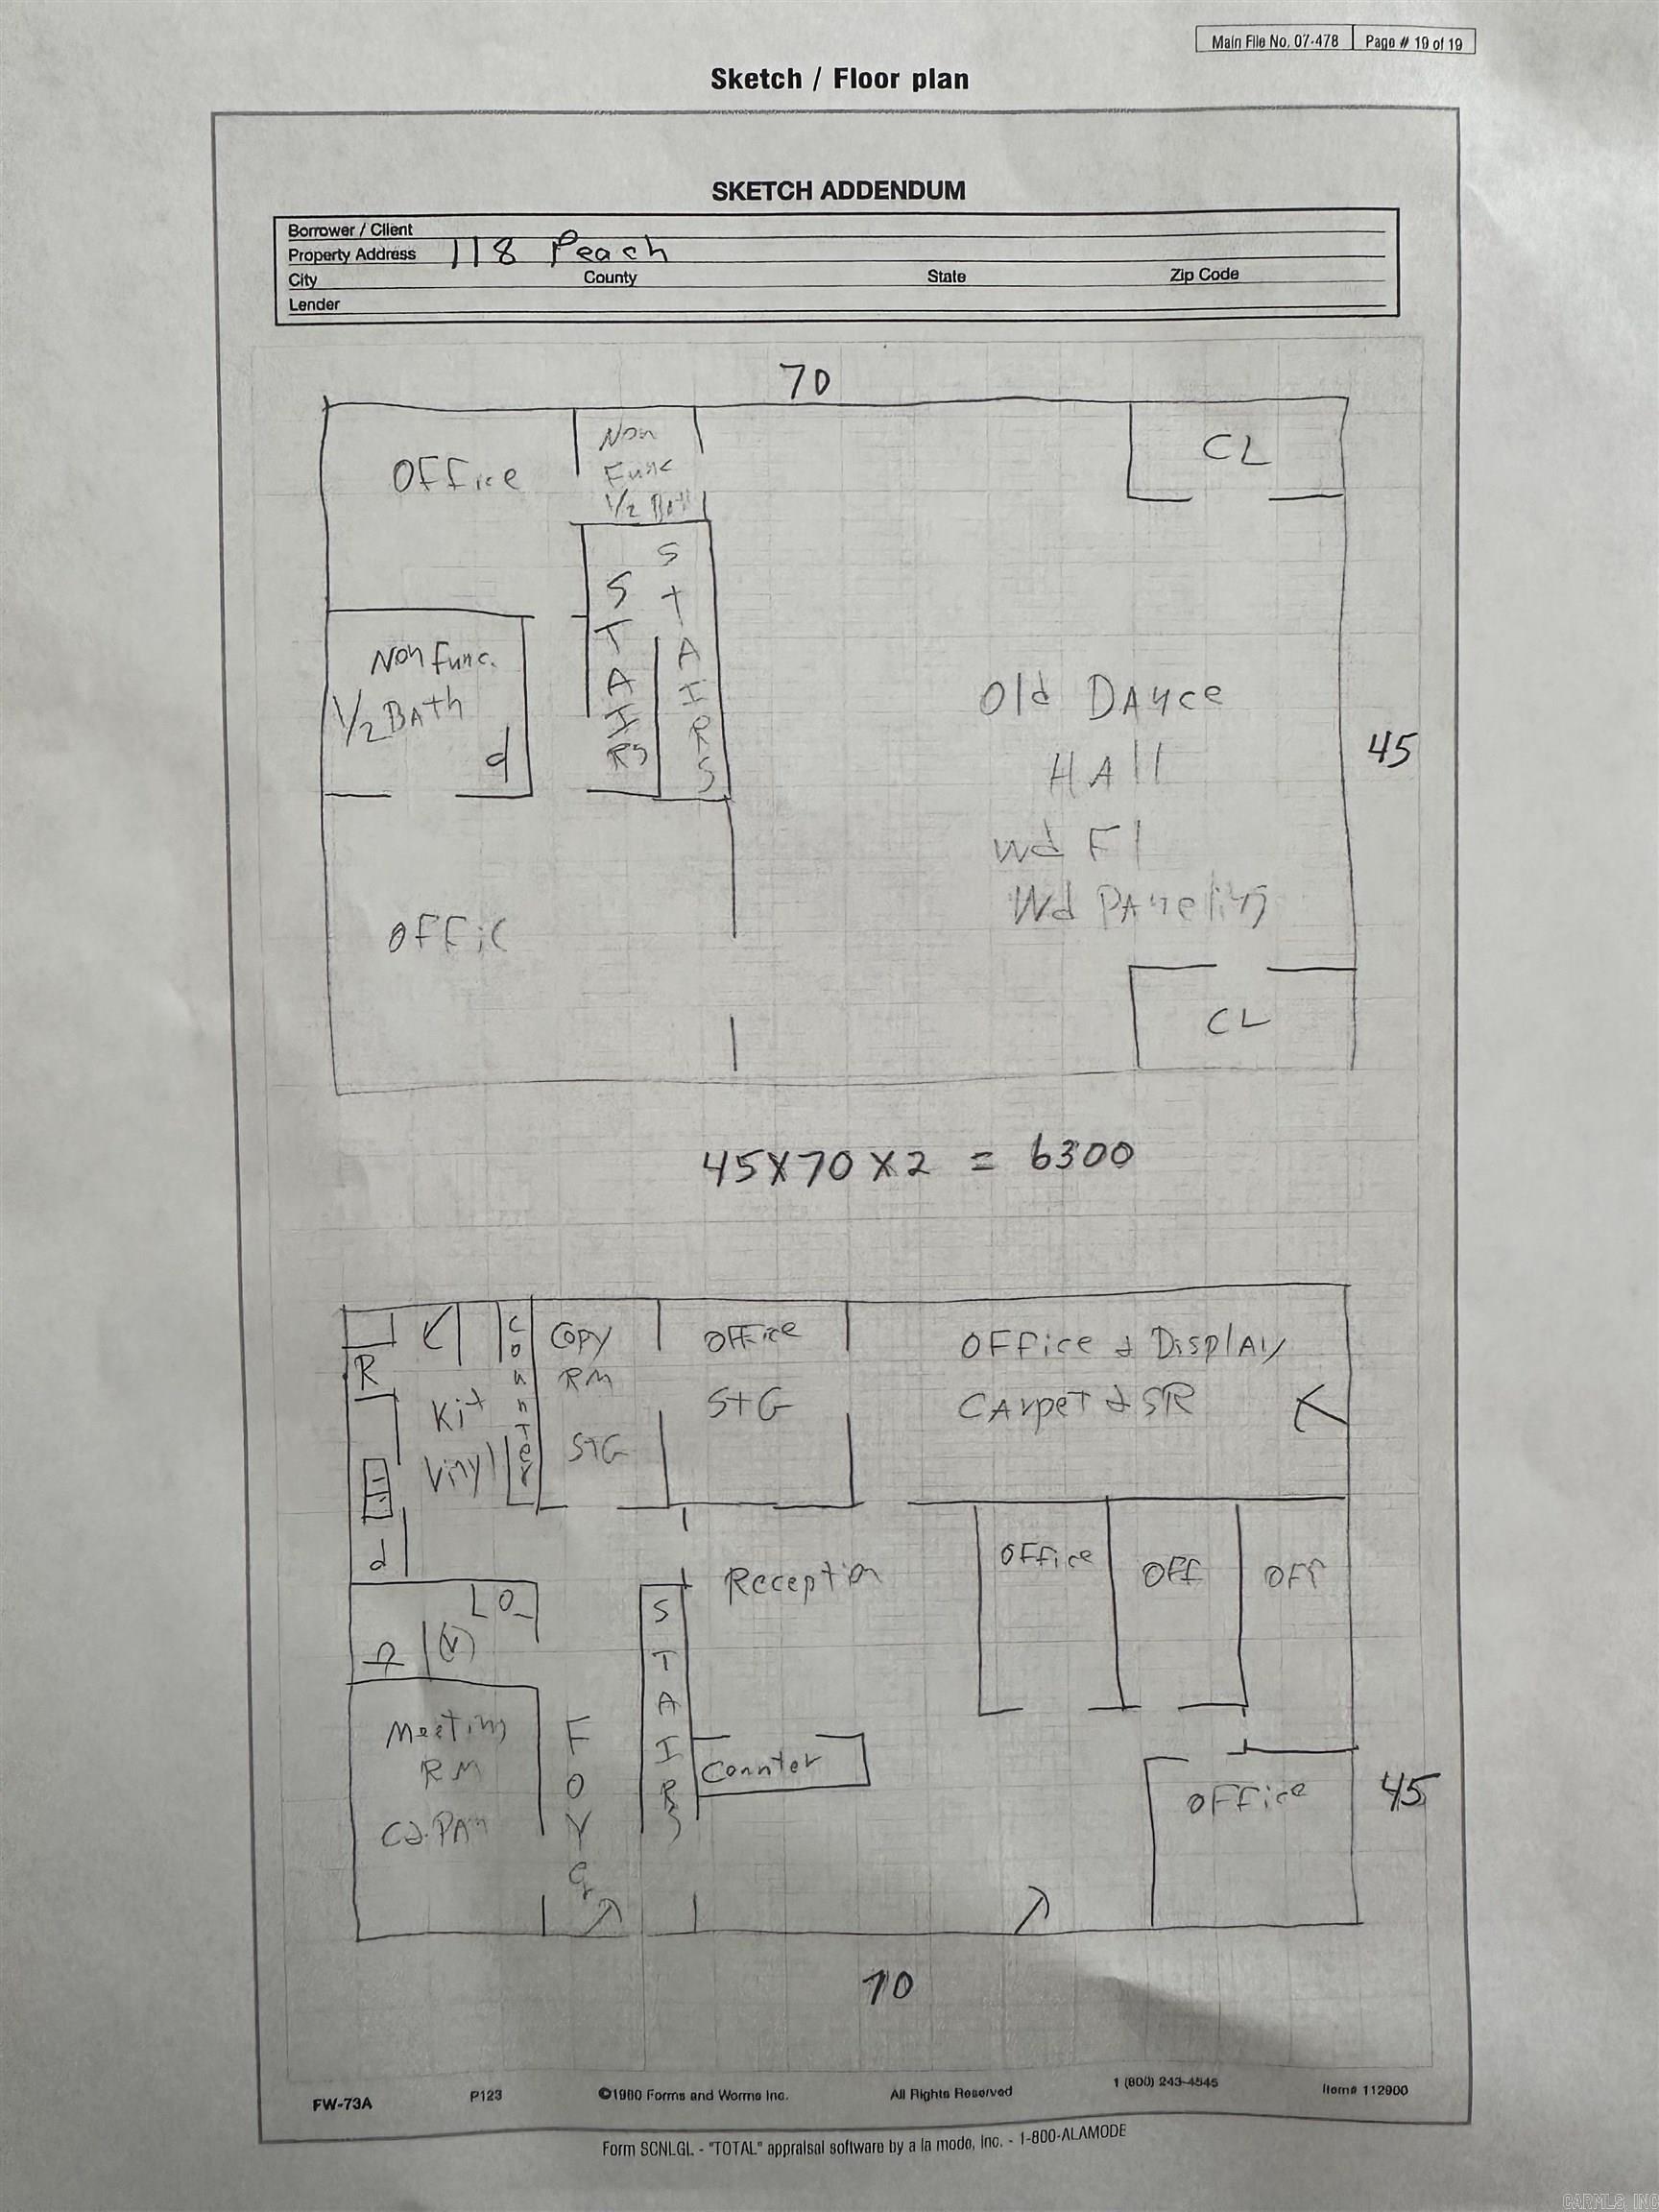 Main File No. 07-478 Page # 19 of 19
Sketch / Floor plan
SKETCH ADDENDUM
Borrower / Client
Property Address 118 Peach
City County State Zip Code
Lender
70
Office
Non
Func
1/2 Bath
CL
STAIRS
STAIRS
Non Func.
1/2 BAth
d
Old DAnce
HAll
Wd Fl
Wd PAneling
45
OFFic
CL
45X70X2 = 6300
R
Kit
Vinyl
Counter
Copy
RM
StG
Office
StG
OFFice & DisplAy
CArpet & SR
d
Reception
OFFice
OFF
OFF
STAIRS
Meeting
RM
FOYer
Counter
OFFice
45
70
FW-73A P123 ©1980 Forms and Worms Inc. All Rights Reserved 1 (800) 243-4545 Item# 112900
Form SCNLGL - "TOTAL" appraisal software by a la mode, inc. - 1-800-ALAMODE
CARMLS, INC